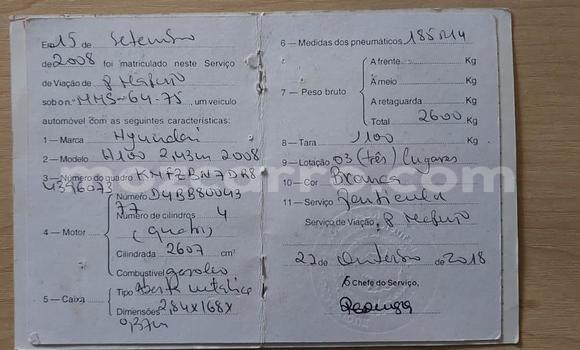 Em 15 de Setembro
de 2008 foi matriculado neste Serviço
de Viação de P. Maputo
sob o n.º MMS-64-75, um veículo
automóvel com as seguintes características:
1 — Marca Hyundai
2 — Modelo H100 2,43m 2008
3 — Número do quadro KMFZBN7DR8
4396073
4 — Motor
Número D4BB80043
77
Número de cilindros 4
(quatro)
Cilindrada 2607 cm³
Combustível gasoleo
5 — Caixa
Tipo Aberta metálica
Dimensões 2,84x168x
6 — Medidas dos pneumáticos 185R14
7 — Peso bruto
A frente Kg
A meio Kg
A retaguarda Kg
Total 2600 Kg
8 — Tara 1100 Kg
9 — Lotação 03 (três) lugares
10 — Cor Branca
11 — Serviço Particular
Serviço de Viação: P. Maputo
22 de Outubro de 2018
O Chefe do Serviço,